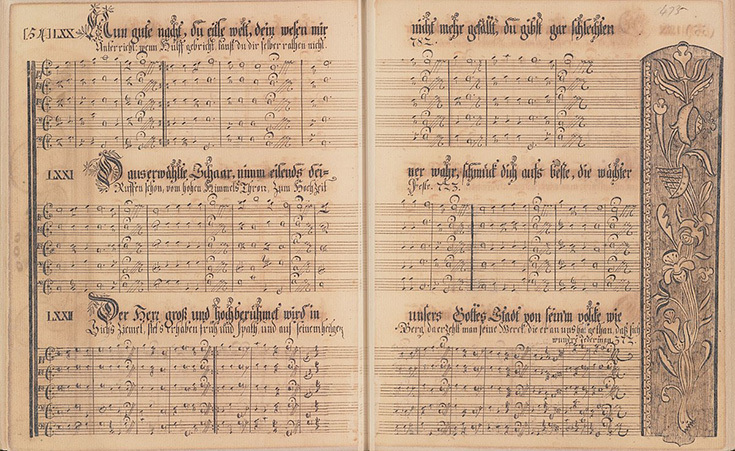 [51] LXX Nun gute nacht, du eitle welt, dein wesen mir nicht mehr gefällt, du gibst gar schlechten
Unterricht: wenn Hülff gebricht, kanst du dir selber rathen nicht.
LXXI O auserwählte Schaar, nimm eilends dei=ner wahr, schmück dich aufs beste, die wächter
Ruffen schon, vom hohen Himmels Thron: Zum HochZeit Feste.
LXXII Der Herr groß und hochberühmet wird in unsers Gottes Stadt von sein'm volcke wie
stets erhaben früh und spath und auf seinem heilgen Berg, da erzehlt man seine Werck, die er an uns hat gethan, daß sich
jederman